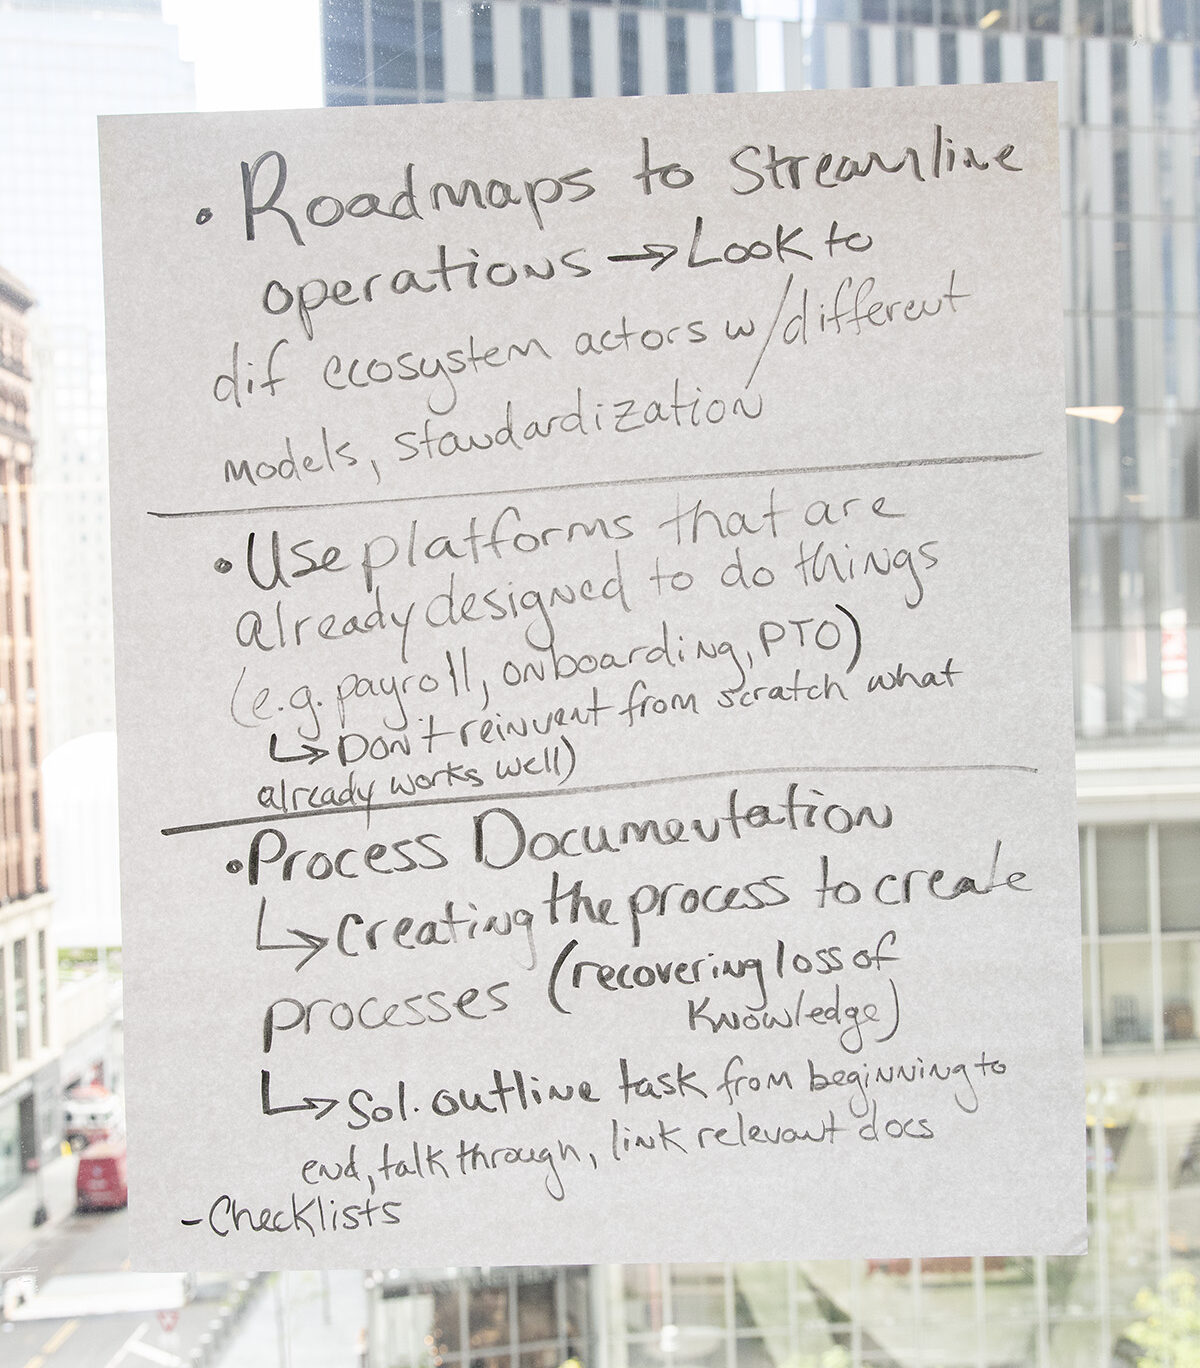 • Roadmaps to streamline
operations → Look to
dif ecosystem actors w/different
models, standardization
• Use platforms that are
already designed to do things
(e.g. payroll, onboarding, PTO)
↳ Don't reinvent from scratch what
already works well)
• Process Documentation
↳ creating the process to create
processes (recovering loss of
knowledge)
↳ Sol. outline task from beginning to
end, talk through, link relevant docs
- Checklists